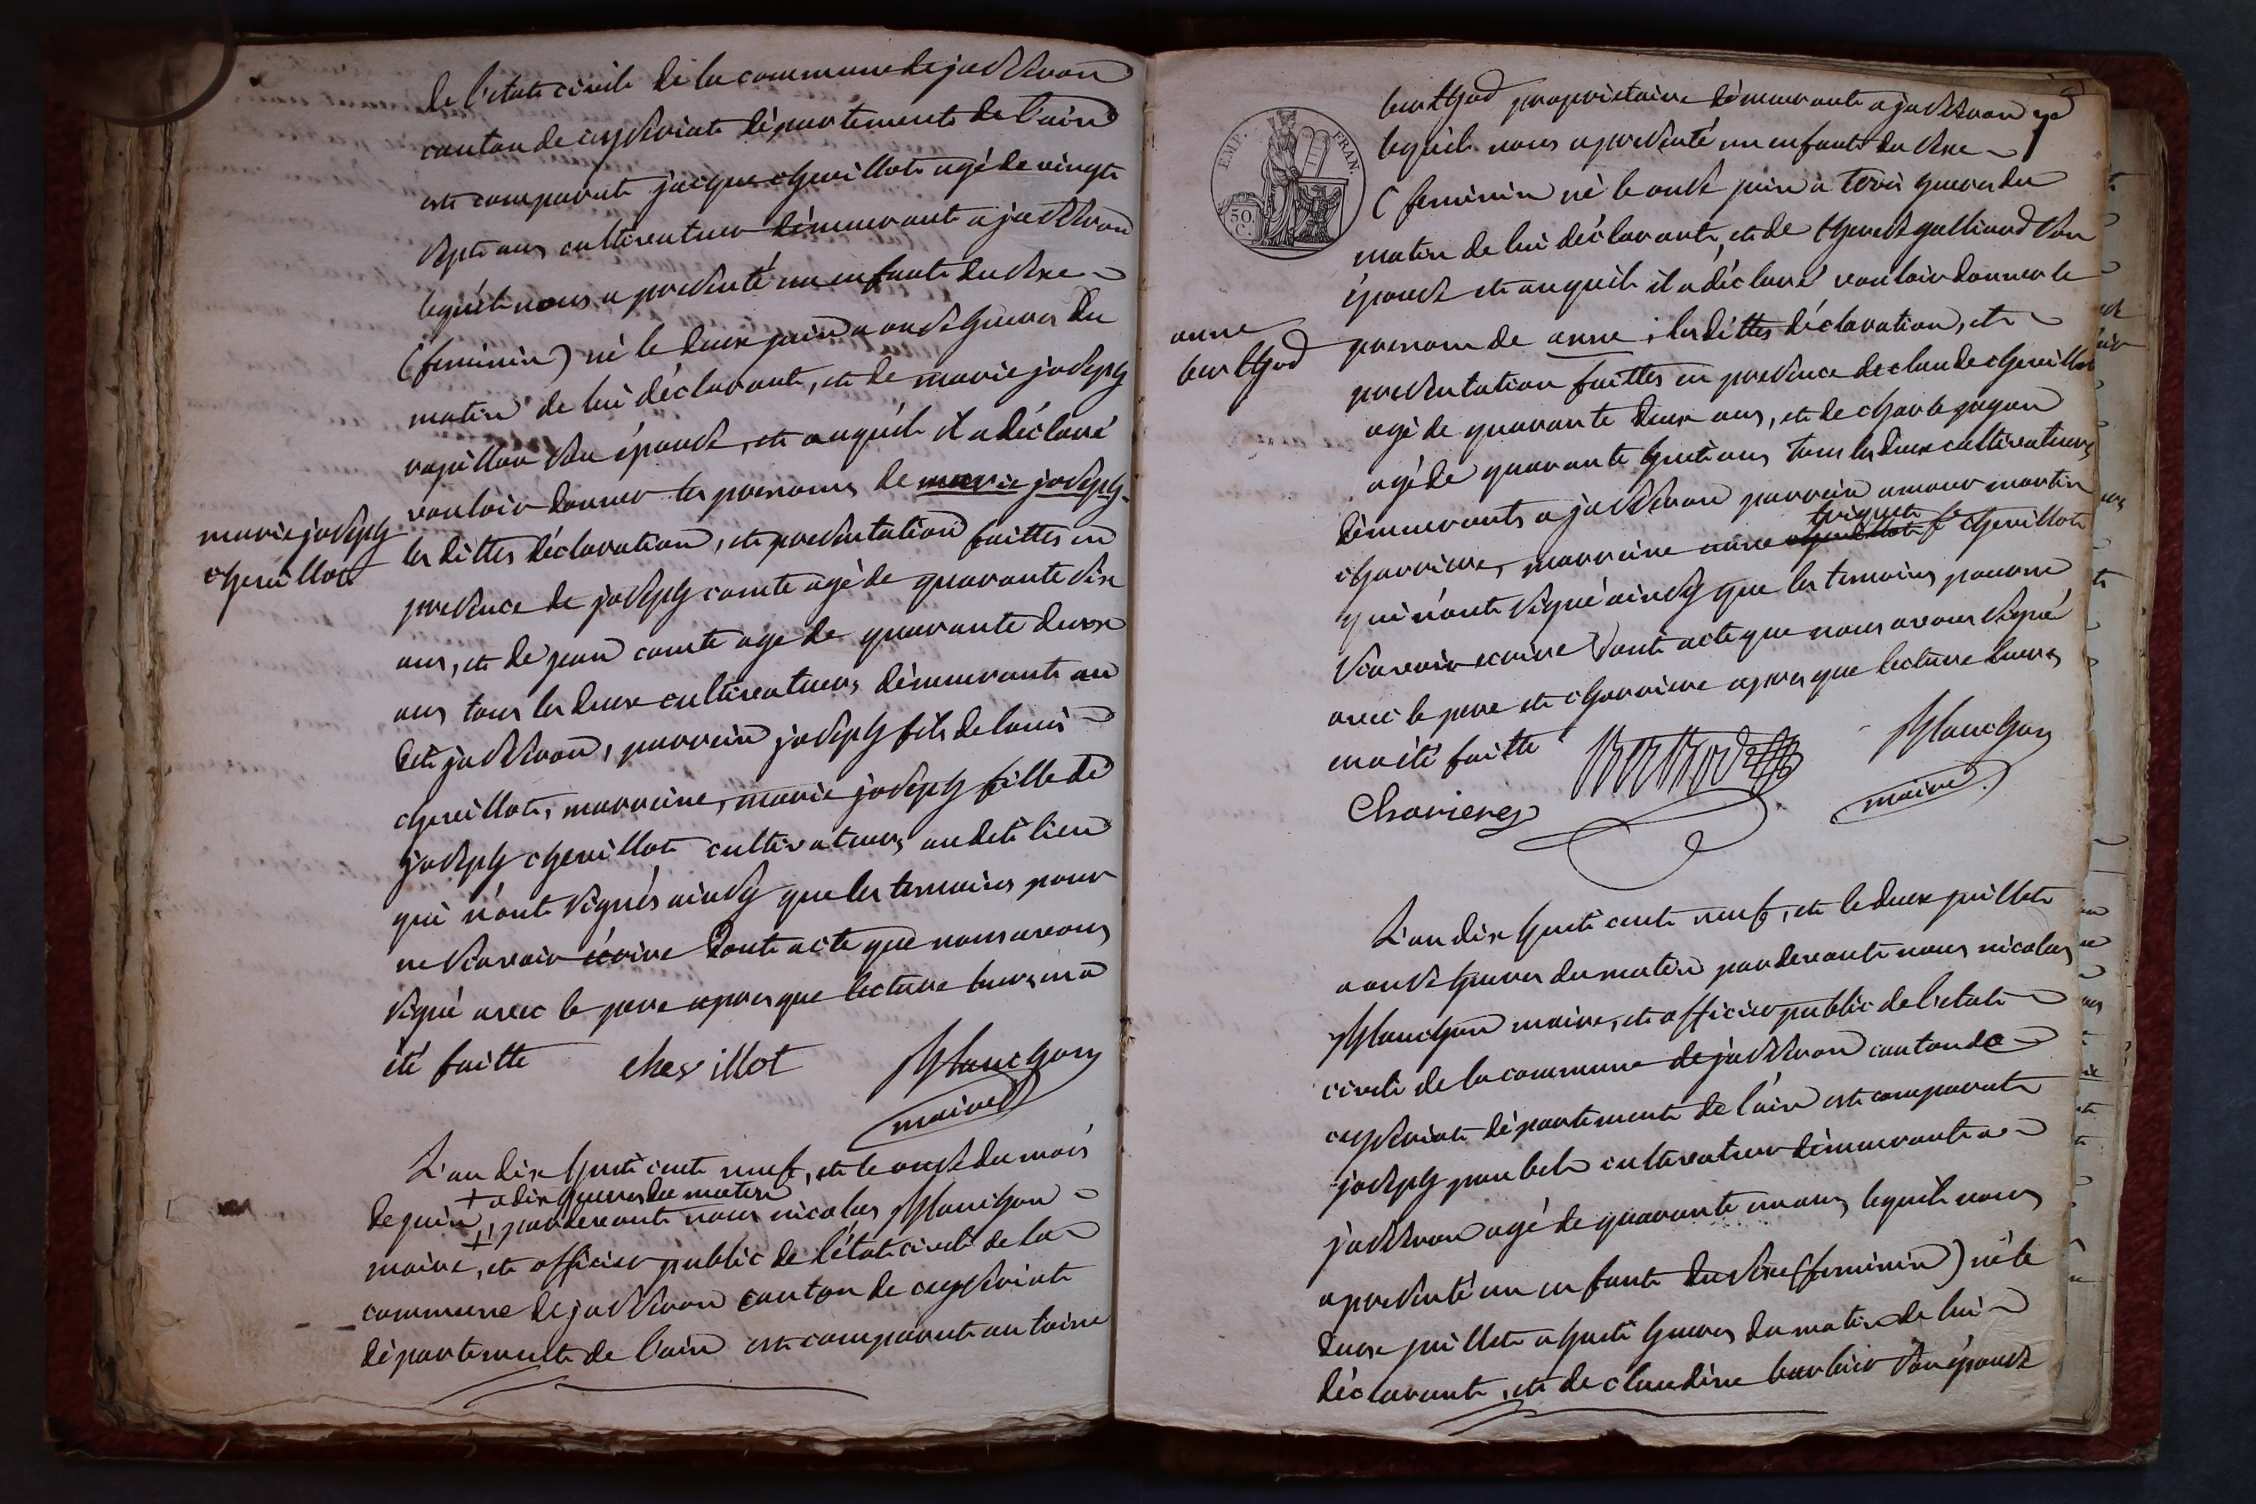 de l'etat civile de la commune de jasseron
canton de ceyseriat département de l'ain
est comparut jacque chevillot agé de vingt
sept ans cultivateur démeurant a jasseron
lequél nous a presenté un enfant du sexe
(feminin) né le deux juin a onse heures du
matin de lui déclarant, et de marie joseph
rapillon son épouse, et auquél il a déclaré
vouloir donner les prenoms de marie joseph
marie joseph
chevillot
les dittes déclaration, et presentation faittes en
presence de joseph comte agé de quarante six
ans, et de jean comte agé de quarante deux
ans tous les deux cultivateurs démeurant au
dit jasseron, parrein joseph fils de louis
chevillot, marreine, marie joseph fille de
joseph chevillot cultivateurs audit lieu
qui n'ont signés ainsy que les temoins pour
ne scavoir écrire dont acte que nous avons
signé avec le pere apres que lecture leurs en a
été faitte chevillot Planchon
maire
L'an dix huit cent neuf, et le onse du mois
+ a dix heures du matin
de juin, pardevant nous nicolas Planchon
maire, et officier public de l'état civile de la
commune de jasseron canton de ceyseriat
département de l'ain est comparut antoine
EMP. FRAN.
50 C.
berthod propriétaire démeurant a jasseron
lequél nous a presenté un enfant du sexe
(feminin né le onse juin a trois heures du
matin de lui déclarant, et de therese galliard son
épouse et auquél il a déclaré vouloir donner le
anne
berthod
prenom de anne, les dittes déclaration, et
presentation faittes en presence de claude chevillot
agé de quarante deux ans, et de charle
agé de quarante huit ans tous les deux cultivateurs
démeurants a jasseron parrein amour martin
charriere, marreine anne chevillot
qui n'ont signé ainsy que les temoins pour ne
scavoir ecrire dont acte que nous avons signé
avec le pere et charriere apres que lecture leurs
en a été faitte Berthod Planchon
Charieres maire
L'an dix huit cent neuf, et le deux juillet
a onse heures du matin pardevant nous nicolas
Planchon maire, et officier public de l'etat
civile de la commune de jasseron canton de
ceyseriat département de l'ain est comparut
joseph paubel cultivateur démeurant a
jasseron agé de quarante un ans lequél nous
a presenté un enfant du sexe (feminin) né le
deux juillet a huit heures du matin de lui
déclarant, et de claudine barbier son épouse